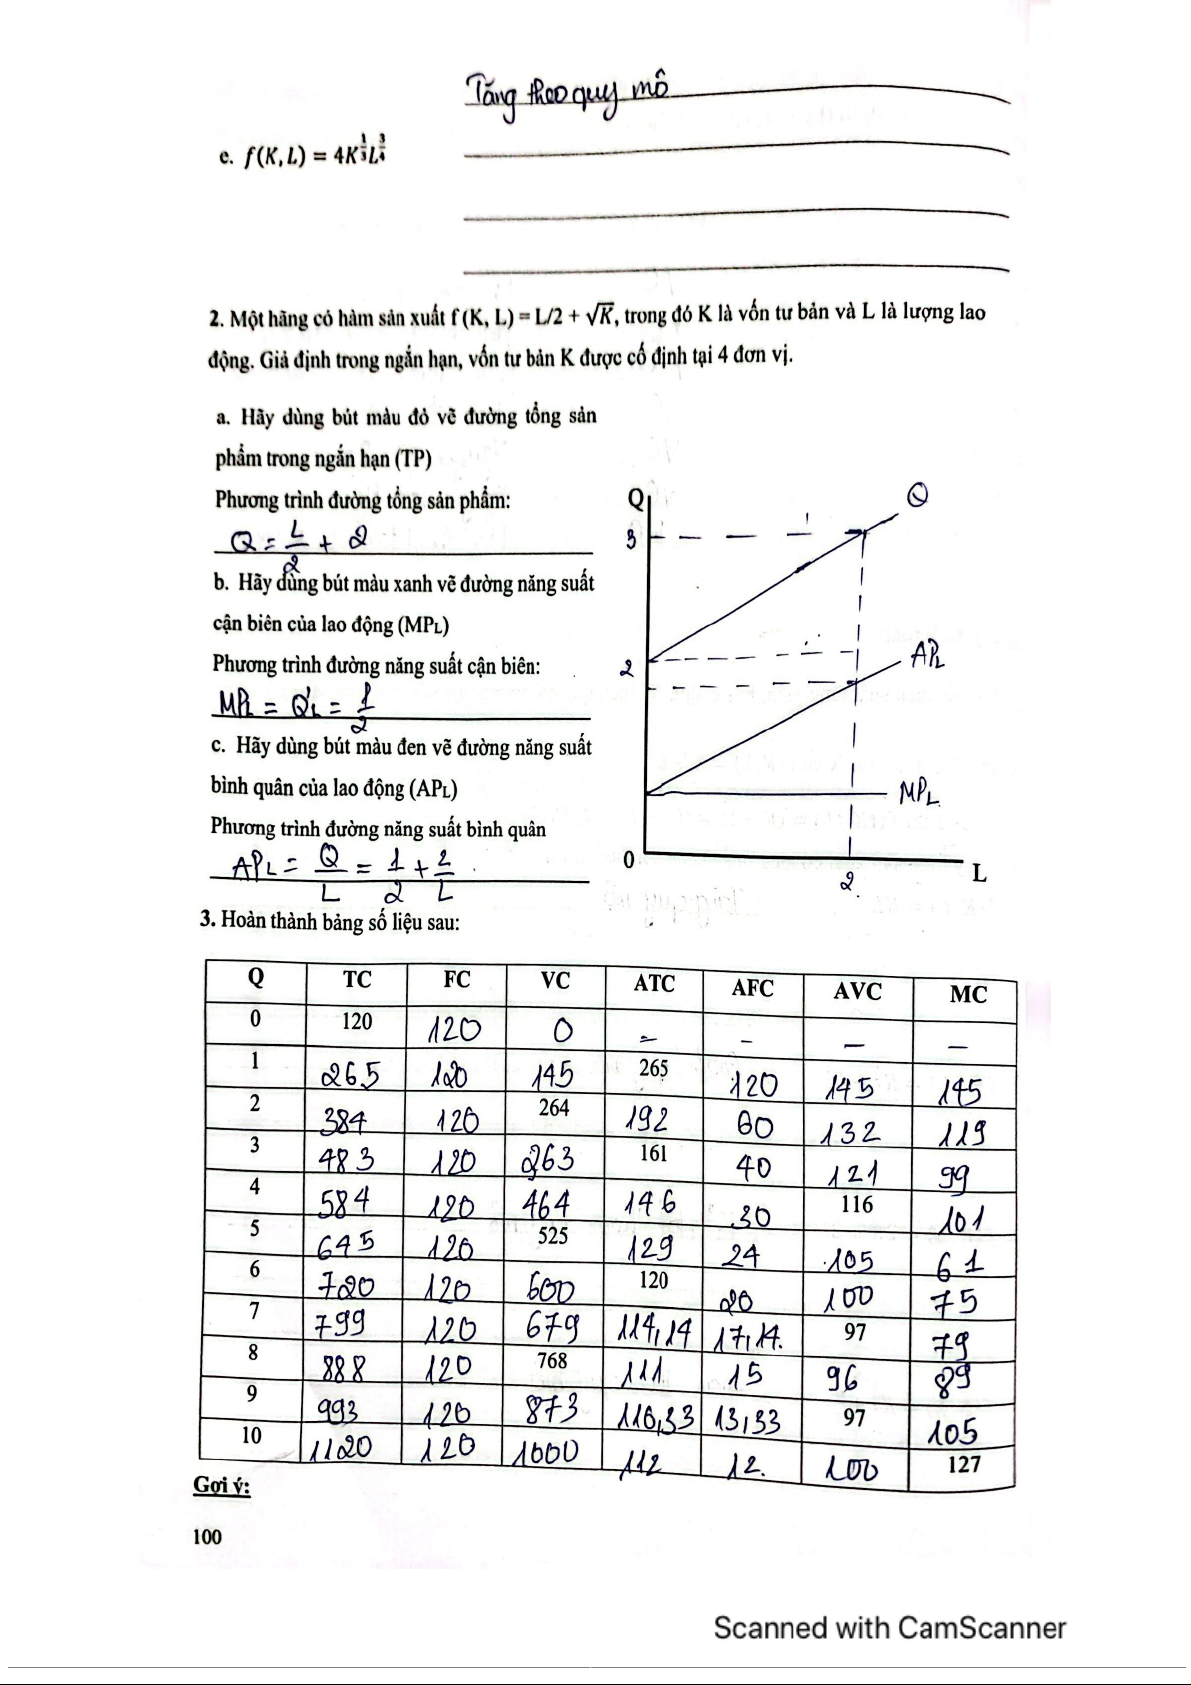 Tăng theo quy mô
e. f(K, L) = 4K^{1/3}L^{3/4}
2. Một hãng có hàm sản xuất f (K, L) = L/2 + √K, trong đó K là vốn tư bản và L là lượng lao
động. Giả định trong ngắn hạn, vốn tư bản K được cố định tại 4 đơn vị.
a. Hãy dùng bút màu đỏ vẽ đường tổng sản
phẩm trong ngắn hạn (TP)
Phương trình đường tổng sản phẩm:
Q = L/2 + 2
b. Hãy dùng bút màu xanh vẽ đường năng suất
cận biên của lao động (MPL)
Phương trình đường năng suất cận biên:
MPL = Q'L = 1/2
c. Hãy dùng bút màu đen vẽ đường năng suất
bình quân của lao động (APL)
Phương trình đường năng suất bình quân
APL = Q/L = 1/2 + 2/L
Q
Q
3
2
APL
MPL
0
2
L
3. Hoàn thành bảng số liệu sau:
Q TC FC VC ATC AFC AVC MC
0 120 120 0 – – – –
1 265 120 145 265 120 145 145
2 384 120 264 192 60 132 119
3 483 120 363 161 40 121 99
4 584 120 464 146 30 116 101
5 645 120 525 129 24 105 61
6 720 120 600 120 20 100 75
7 799 120 679 114,14 17,14 97 79
8 888 120 768 111 15 96 89
9 993 120 873 110,33 13,33 97 105
10 1120 120 1000 112 12 100 127
Gợi ý:
100
Scanned with CamScanner